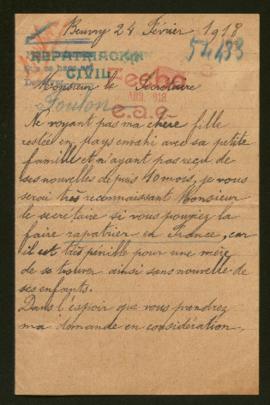 Beuvry 24 Février 1918
54433
REPATRIACION
CIVIL
Monsieur le Secrétaire
Ne voyant pas ma chère fille
restée en pays envahi avec sa petite
famille et n'ayant pas reçu de
ses nouvelles depuis 40 mois, je vous
serai très reconnaissant Monsieur
le secrétaire si vous pouviez la
faire rapatrier en France, car
il est très pénible pour une mère
de se trouver ainsi sans nouvelle de
ses enfants.
Dans l'espoir que vous prendrez
ma demande en considération.